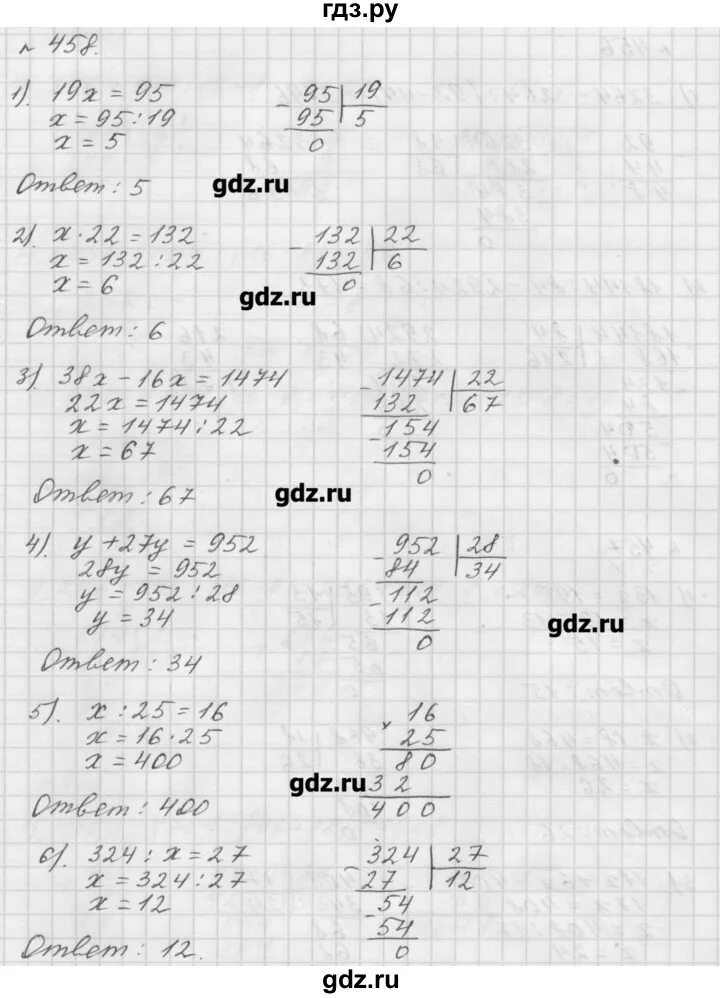 гдз.ру
№ 458.
1). 19x = 95
x = 95 : 19
x = 5
95 | 19
95 | 5
0
Ответ : 5
gdz.ru
2). x · 22 = 132
x = 132 : 22
x = 6
132 | 22
132 | 6
0
gdz.ru
Ответ : 6
3) 38x - 16x = 1474
22x = 1474
x = 1474 : 22
x = 67
- 1474 | 22
132 | 67
- 154
154
0
Ответ : 67
gdz.ru
4). y + 27y = 952
28y = 952
y = 952 : 28
y = 34
- 952 | 28
84 | 34
- 112
112
0
gdz.ru
Ответ : 34
5). x : 25 = 16
x = 16 · 25
x = 400
× 16
25
80
32
400
gdz.ru
Ответ : 400
6). 324 : x = 27
x = 324 : 27
x = 12
- 324 | 27
27 | 12
- 54
54
0
Ответ : 12.
gdz.ru